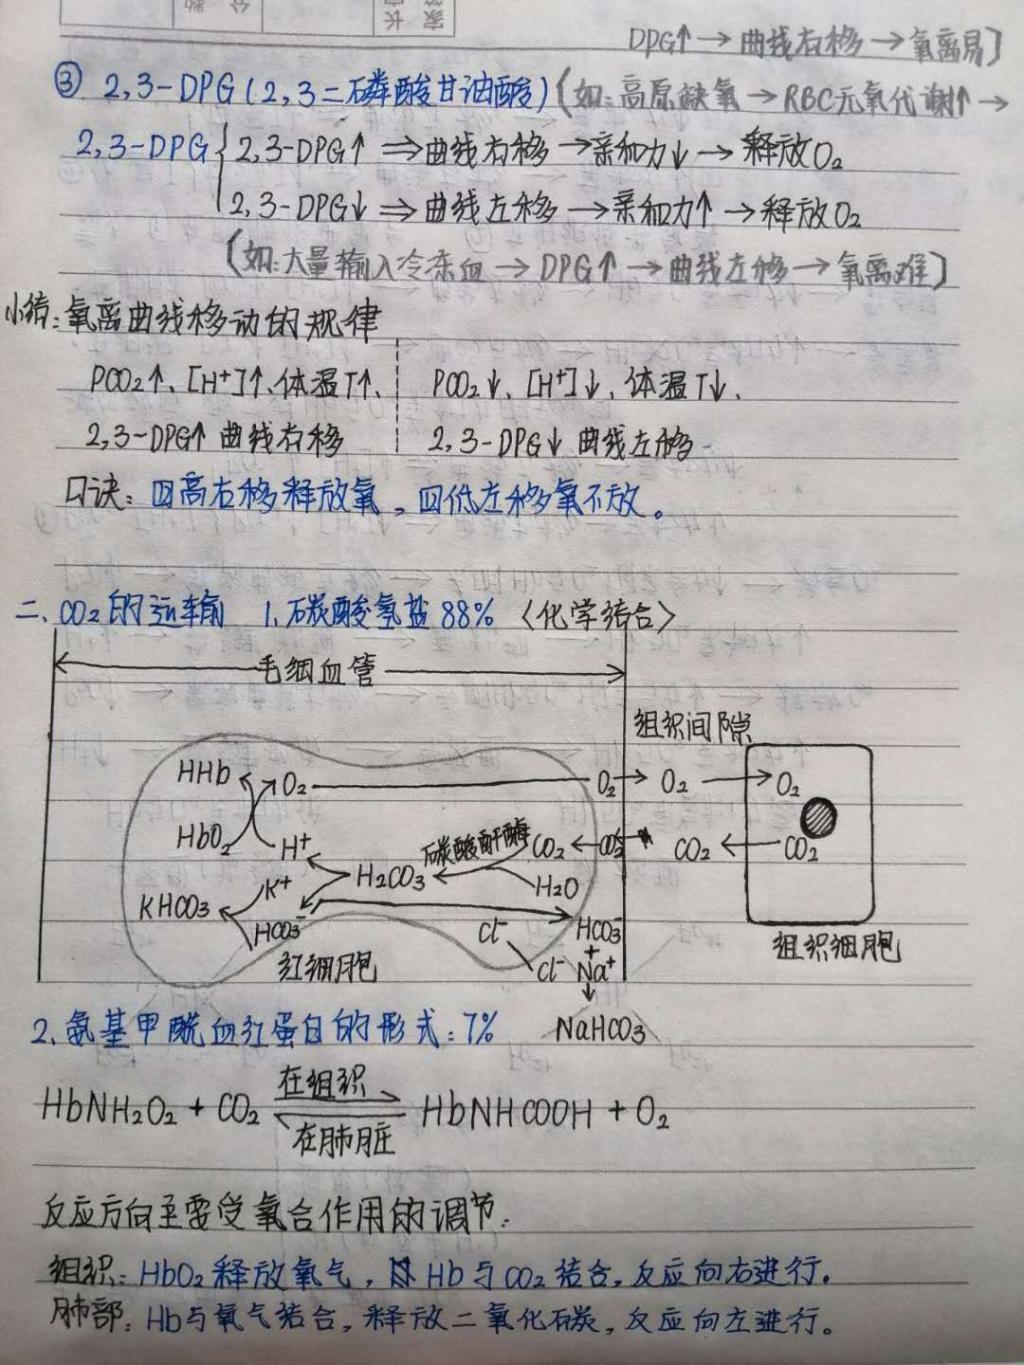 DPG↑→曲线右移→氧离易)
③ 2,3-DPG(2,3二磷酸甘油酸)(如:高原缺氧→RBC无氧代谢↑→
2,3-DPG{2,3-DPG↑⇒曲线右移→亲和力↓→释放O₂
2,3-DPG↓⇒曲线左移→亲和力↑→释放O₂
(如:大量输入冷冻血→DPG↑→曲线左移→氧离难)
小结:氧离曲线移动的规律
PCO₂↑、[H⁺]↑、体温T↑、 PCO₂↓、[H⁺]↓、体温T↓、
2,3-DPG↑曲线右移 2,3-DPG↓曲线左移
口诀:四高右移释放氧,四低左移氧不放。
二、CO₂的运输 1.碳酸氢盐88%〈化学结合〉
毛细血管
组织间隙
HHb O₂ O₂→O₂→O₂
HbO₂ H⁺ 碳酸酐酶 CO₂←CO₂ CO₂←CO₂
K⁺ H₂CO₃ H₂O
KHCO₃ HCO₃⁻ Cl⁻ HCO₃⁻
+
红细胞 Cl⁻ Na⁺
↓
组织细胞
2、氨基甲酰血红蛋白的形式:7% NaHCO₃
在组织
HbNH₂O₂+CO₂⇌HbNHCOOH+O₂
在肺脏
反应方向主要受氧合作用的调节.
组织:HbO₂释放氧气,Hb与CO₂结合,反应向右进行。
肺部:Hb与氧气结合,释放二氧化碳,反应向左进行。